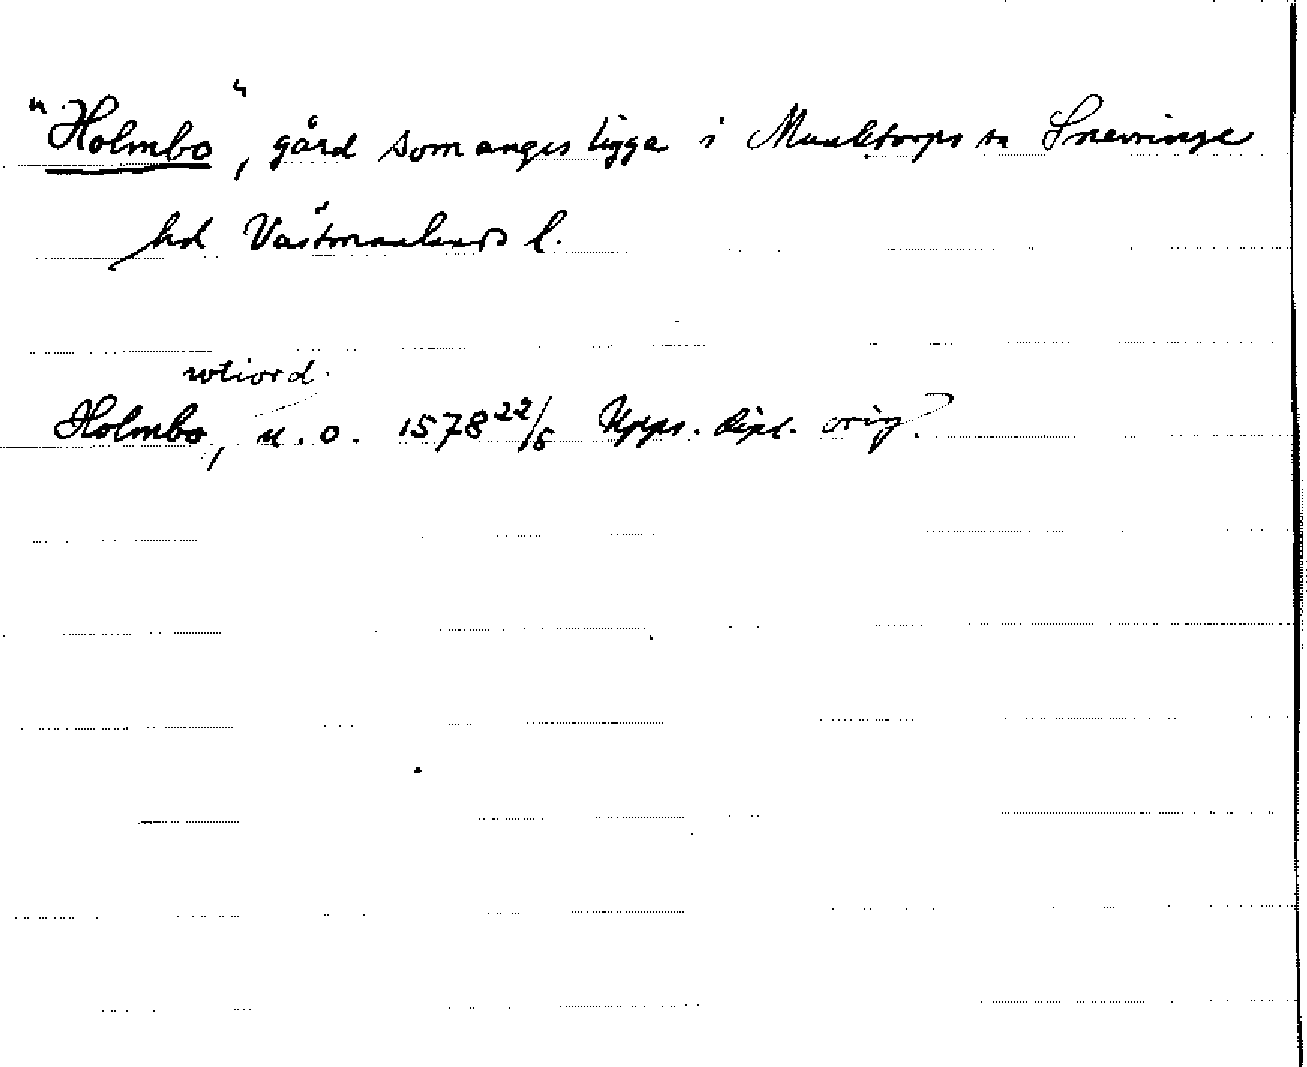 "Holmbo", gård som anges ligga i Munktorps sn Snevringe
hd Västmanlands l.
utiord.
Holmbo, u.o. 1578 22/5 Upps. dipl. orig.?